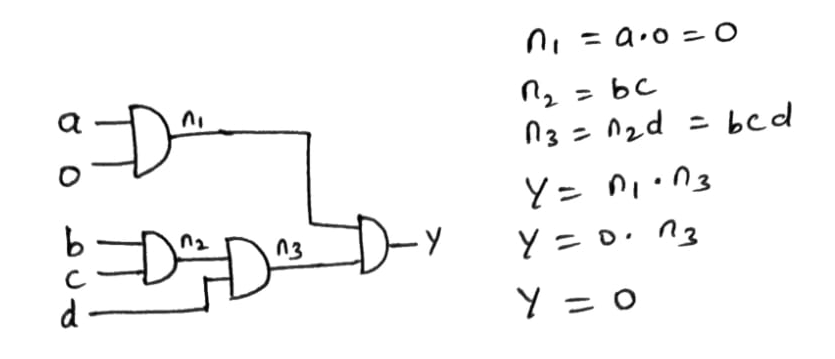 a
0
n₁
b
c
d
n₂
n₃
Y
n₁ = a·0 = 0
n₂ = bc
n₃ = n₂d = bcd
Y = n₁·n₃
Y = 0· n₃
Y = 0